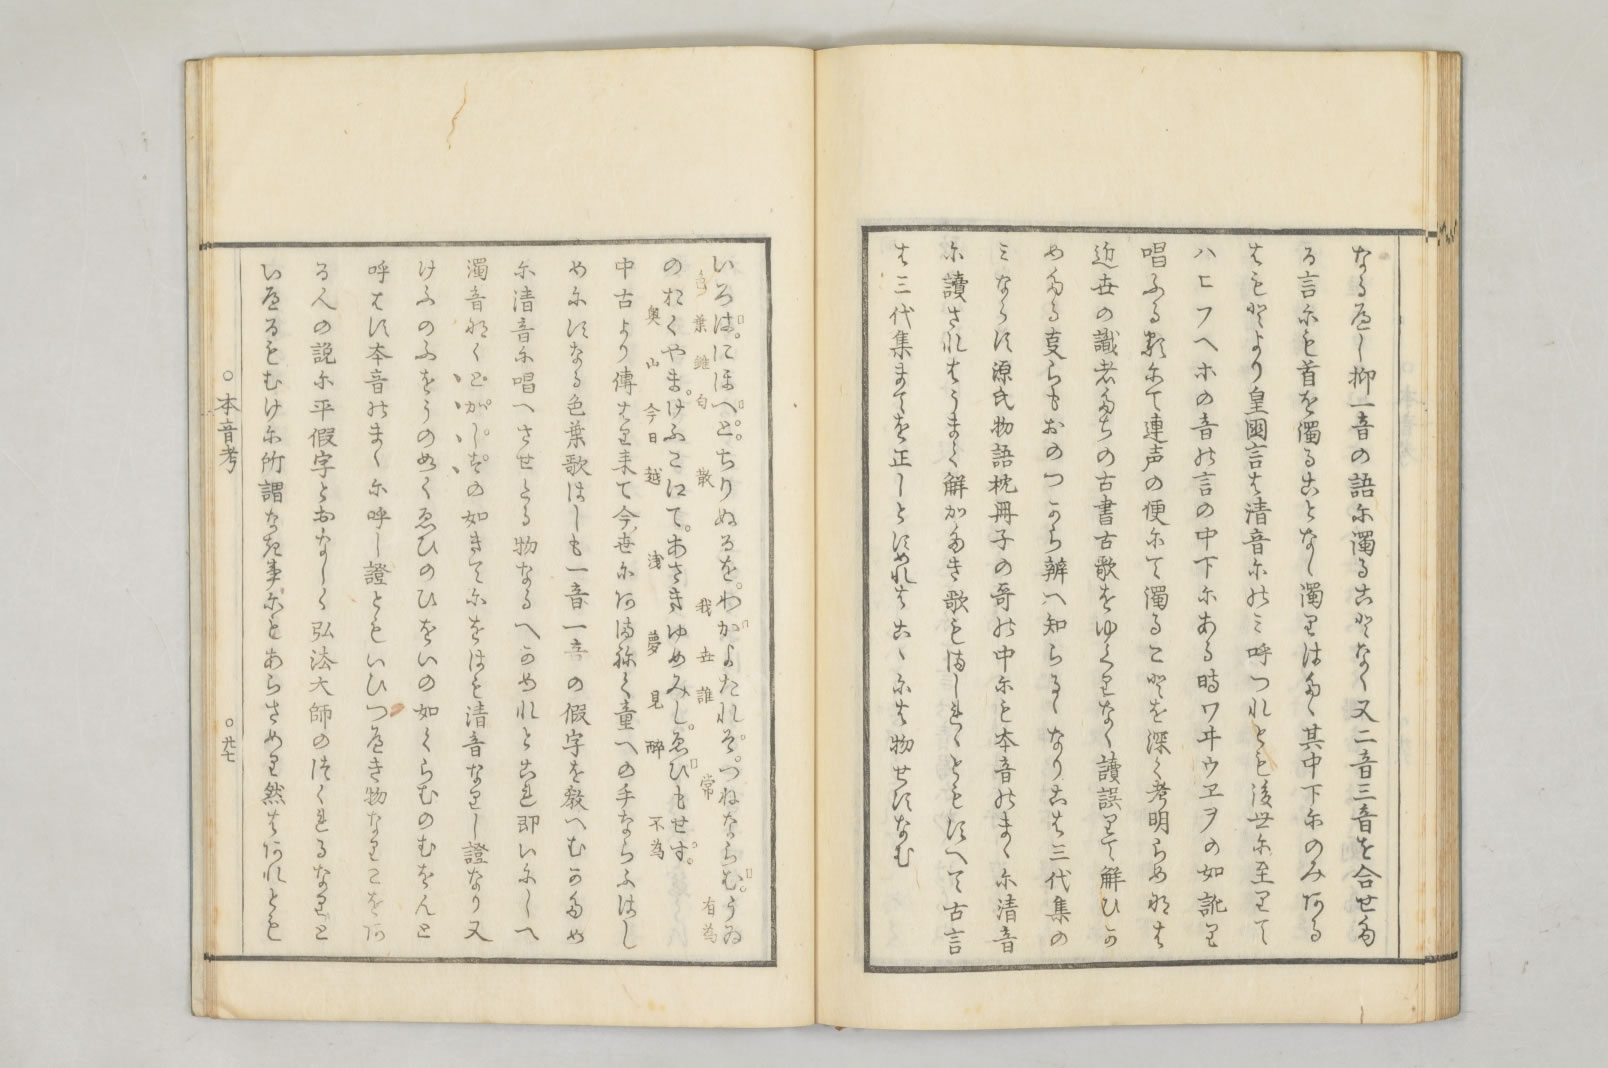 なるべし抑一音の語に濁ることなく又二音三音を合せた
る言にも首を濁ることなし濁りはたゝ其中下にのみある
はもとより皇國言は清音にのみ呼つれとも後世に至りて
ハヒフヘホの音の言の中下にある時ワヰウヱヲの如訛り
唱ふる類にて連声の便にて濁ることを深く考明らめねは
近世の識者たちの古書古歌をゆくりなく讀誤りて解ひか
めたる事らもおのつから辨へ知らるゝなりこは三代集の
ミならす源氏物語枕冊子の哥の中にも本音のまゝに清音
に讀されはうまく解かたき歌もましれゝともすへて古言
は三代集まてを正しとすめれはこゝには物せすなむ
いろは。にほへと。ちりぬるを。わがよたれそ。つねならむ。うゐ
色葉雖匂 散 我世誰 常 有為
のおくやま。けふこえて。あさきゆめみし。ゑひもせす。
奥山 今日越 浅 夢見 醉 不為
中古より傳はり来て今世にあまねく童への手ならふはし
めにすなる色葉歌はしも一音一音の假字を教へむかため
に清音に唱へさせたる物なるへかめれとこれ即いにしへ
濁音なくどがじぞの如きてにをはも清音なりし證なり又
けふのふをうのめくゑひのひをいの如くらむのむをんと
呼はす本音のまゝに呼し證ともいひつへき物なりこをあ
る人の説に平假字とおなしく弘法大師のつくれるなりと
いへるもむけに所謂なき事にもあらさめり然はあれとも
○本音考
○廿七